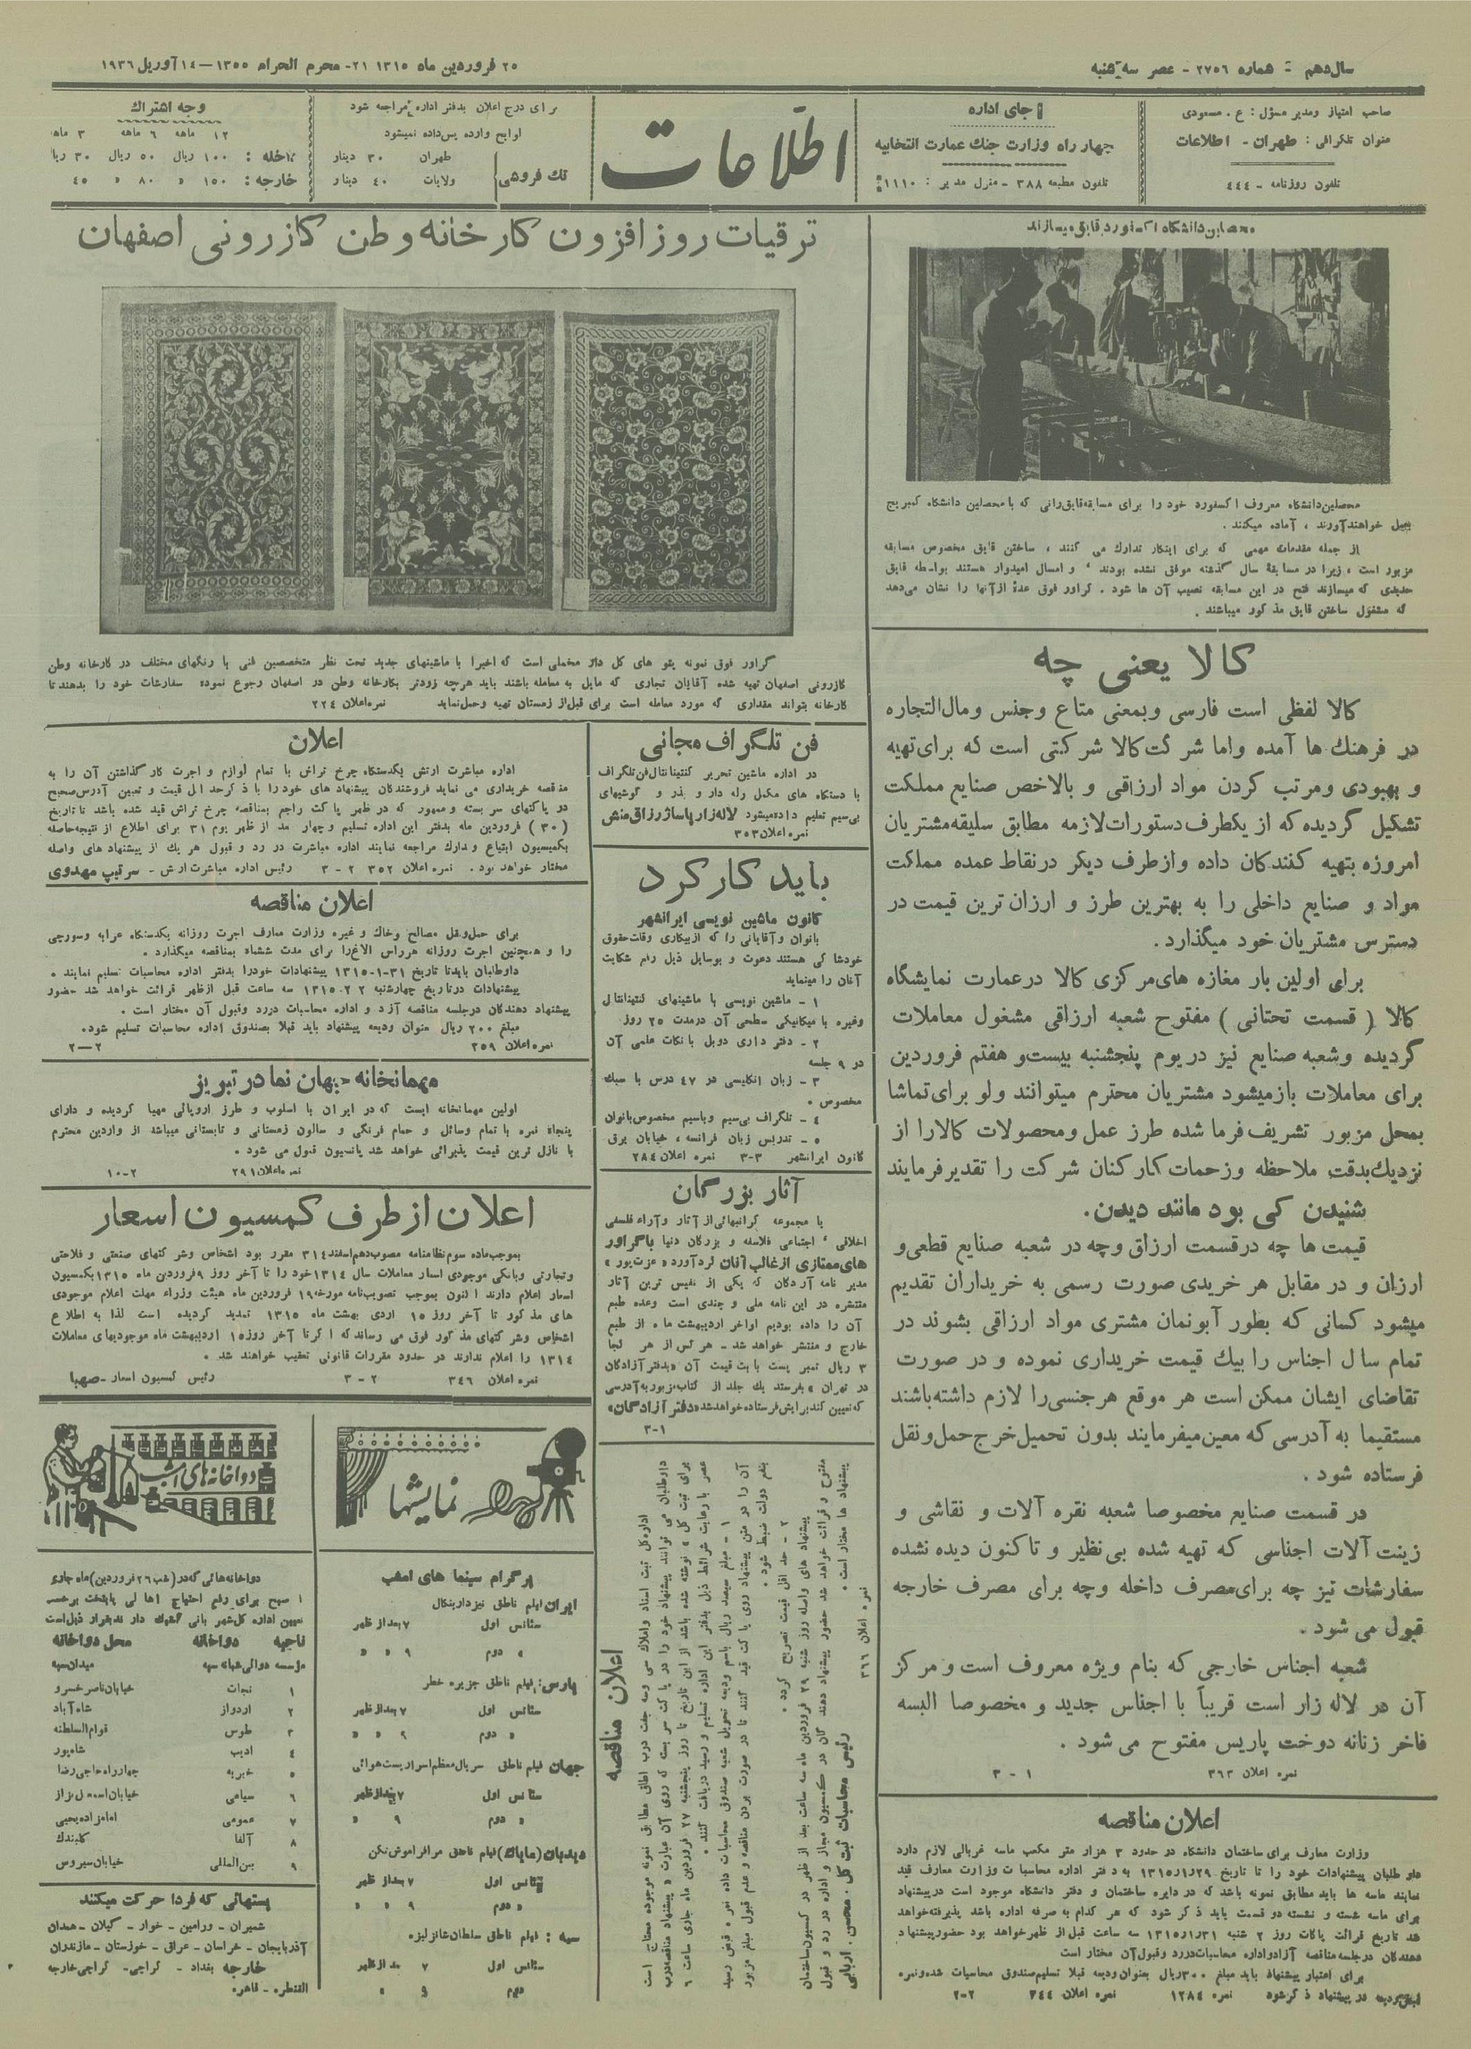 سال دهم - شماره ۲۷۵۶ - عصر سه شنبه
۲۵ فروردین ماه ۱۳۱۵ ۲۱- محرم الحرام ۱۳۵۵ - ۱۴ آوریل ۱۹۳۶
صاحب امتیاز ومدیر مسؤل : ع . مسعودی
عنوان تلگرافی : طهران - اطلاعات
تلفون روزنامه - ۴۴۴
جای اداره
چهار راه وزارت جنك عمارت انتخابیه
تلفون مطبعه ۳۸۸ - منزل مدیر : ۱۱۱۰
اطلاعات
برای درج اعلان بدفتر اداره مراجعه شود
لوایح وارده پس داده نمیشود
تك فروشی
طهران ۳۰ دینار
ولایات ۴۰ دینار
وجه اشتراك
۱۲ ماهه ۶ ماهه ۳ ماهه
داخله : ۱۰۰ ریال ۵۰ ریال ۳۰ ریال
خارجه : ۱۵۰ » ۸۰ » ۴۵
محصلین دانشگاه اکسفورد قایق میسازند
محصلین دانشگاه معروف اکسفورد خود را برای مسابقه قایق رانی که با محصلین دانشگاه کمبریج
بعمل خواهند آورند ، آماده میکنند .
از جمله مقدمات مهمی که برای اینکار تدارك می کنند ، ساختن قایق مخصوص مسابقه
مزبور است ، زیرا در مسابقهٔ سال گذشته موفق نشده بودند ، و امسال امیدوار هستند بواسطه قایق
جدیدی که میسازند فتح در این مسابقه نصیب آن ها شود . گراور فوق عدهٔ از آنها را نشان می‌دهد
که مشغول ساختن قایق مذکور میباشند .
کالا یعنی چه
کالا لفظی است فارسی وبمعنی متاع وجنس ومال‌التجاره
در فرهنك ها آمده واما شرکت کالا شرکتی است که برای تهیه
و بهبودی ومرتب کردن مواد ارزاقی و بالاخص صنایع مملکت
تشکیل گردیده که از یکطرف دستورات لازمه مطابق سلیقه مشتریان
امروزه بتهیه کنندکان داده وازطرف دیگر درنقاط عمده مملکت
مواد و صنایع داخلی را به بهترین طرز و ارزان ترین قیمت در
دسترس مشتریان خود میگذارد .
برای اولین بار مغازه های مرکزی کالا درعمارت نمایشگاه
کالا ( قسمت تحتانی ) مفتوح شعبه ارزاقی مشغول معاملات
گردیده وشعبه صنایع نیز دریوم پنجشنبه بیست و هفتم فروردین
برای معاملات بازمیشود مشتریان محترم میتوانند ولو برای تماشا
بمحل مزبور تشریف فرما شده طرز عمل ومحصولات کالارا از
نزدیك بدقت ملاحظه وزحمات کارکنان شرکت را تقدیرفرمایند
شنیدن کی بود مانند دیدن.
قیمت ها چه درقسمت ارزاق وچه در شعبه صنایع قطعی و
ارزان و در مقابل هر خریدی صورت رسمی به خریداران تقدیم
میشود کسانی که بطور آبونمان مشتری مواد ارزاقی بشوند در
تمام سال اجناس را بیك قیمت خریداری نموده و در صورت
تقاضای ایشان ممکن است هر موقع هرجنسی را لازم داشته باشند
مستقیما به آدرسی که معین میفرمایند بدون تحمیل خرج حمل ونقل
فرستاده شود .
در قسمت صنایع مخصوصا شعبه نقره آلات و نقاشی و
زینت آلات اجناسی که تهیه شده بی نظیر و تاکنون دیده نشده
سفارشات نیز چه برای مصرف داخله وچه برای مصرف خارجه
قبول می شود .
شعبه اجناس خارجی که بنام ویژه معروف است و مرکز
آن در لاله زار است قریباً با اجناس جدید و مخصوصا البسه
فاخر زنانه دوخت پاریس مفتوح می شود .
نمره اعلان ۳۶۳ ۱ - ۳
اعلان مناقصه
وزارت معارف برای ساختمان دانشگاه در حدود ۳ هزار متر مکعب ماسه غربالی لازم دارد
داوطلبان پیشنهادات خود را تا تاریخ ۱۳۱۵/۱/۲۹ به دفتر اداره محاسبات وزارت معارف قید
نمایند ماسه ها باید مطابق نمونه باشد که در دایره ساختمان و دفتر دانشگاه موجود است درپیشنهاد
برای ماسه شسته و نشسته دو قسمت باید ذکر شود که هر کدام به صرفه اداره باشد پذیرفته‌خواهد
شد تاریخ قرائت پاکات روز ۲ شنبه ۱۳۱۵/۱/۳۱ سه ساعت قبل از ظهر خواهد بود حضور پیشنهاد
دهندگان درجلسه مناقصه آزاد واداره محاسبات دررد وقبول آن مختار است
برای اعتبار پیشنهاد باید مبلغ ۳۰۰ ریال بعنوان ودیعه قبلا تسلیم صندوق محاسبات شده ونمره
در پیشنهاد ذکرشود نمره ۱۲۸۴ نمره اعلان ۳۴۴ ۲-۲
ترقیات روز افزون کارخانه وطن کازرونی اصفهان
گراور فوق نمونه پتو های گل دار مخملی است که اخیرا با ماشینهای جدید تحت نظر متخصصین فنی با رنگهای مختلف در کارخانه وطن
کازرونی اصفهان تهیه شده آقایان تجاری که مایل به معامله باشند باید هرچه زودتر بکارخانه وطن در اصفهان رجوع نموده سفارشات خود را بدهند تا
کارخانه بتواند مقداری که مورد معامله است برای قبل از زمستان تهیه وحمل نماید نمره اعلان ۲۲۴
فن تلگراف مجانی
در اداره ماشین تحریر کنتینانتال فن تلگراف
با دستگاه های مکمل رله دار و بذر و گوشیهای
بی‌سیم تعلیم داده میشود لاله زار پاساژ رزاق منش
نمره اعلان ۳۵۳
باید کار کرد
کانون ماشین نویسی ایرانشهر
بانوان و آقایانی را که ازبیکاری وقلت حقوق
خودشا کی هستند دعوت و بوسایل ذیل رفع شکایت
آنان را مینماید
۱ - ماشین نویسی با ماشینهای کنتینانتال
وغیره با میکانیکی سطحی آن درمدت ۲۵ روز
۲ - دفتر داری دوبل با نکات علمی آن
در ۹ جلسه
۳ - زبان انگلیسی در ۴۷ درس با سبك
مخصوص .
۴ - تلگراف بی‌سیم وباسیم مخصوص بانوان
۵ - تدریس زبان فرانسه ، خیابان برق
کانون ایرانشهر ۳-۳ نمره اعلان ۲۸۴
آثار بزرگان
با مجموعه گرانبهائی از آثار وآراء فلسفی
اخلاقی ، اجتماعی فلاسفه و بزرگان دنیا با گراور
های ممتازی از غالب آنان گردآورده «عزت‌پور»
مدیر نامه آزادگان که یکی از نفیس ترین آثار
منتشره در این نامه ملی و چندی است وعده طبع
آن را داده بودیم اواخر اردیبهشت ماه از طبع
خارج و منتشر خواهد شد - هرکس از هر کجا
۳ ریال تمبر پست بابت قیمت آن «بدفتر آزادگان
در تهران» بفرستد یك جلد از کتاب مزبور به آدرسی
که تعیین کند برایش فرستاده خواهد شد «دفتر آزادگان»
۱-۳
اعلان مناقصه
اداره کل ثبت اسناد واملاك سی وسه جفت درب اطاق مطابق نمونه موجوده محتاج است
داوطلبان می توانند پیشنهاد خود را در پاکت سر بسته که روی آن عبارت « پیشنهاد مناقصه درب
برای ثبت کل » نوشته شده باشد از این تاریخ تا روز پنجشنبه ۲۷ فروردین ماه جاری ساعت ۶
عصر با رعایت شرائط ذیل بدفتر این اداره تسلیم و رسید دریافت کنند .
۱ - مبلغ سیصد ریال باسم ودیعه تحویل شعبه صندوق محاسبات داده نمره قبض رسید
آن را در متن پیشنهاد روی پاکت قید کنند تا در صورت بردن مناقصه و عدم قبول مبلغ مزبور
بنفع دولت ضبط شود .
۲ - حد اقل قیمت تصریح گردد .
پیشنهاد های واصله روز شنبه ۲۹ فروردین ماه سه ساعت بعد از ظهر در کمیسیون ساختمان
مفتوح و قرائت خواهد شد حضور پیشنهاد دهندگان در کمیسیون مجاز و اداره در رد و قبول
پیشنهاد ها مختار است . رئیس محاسبات ثبت کل . محسن . اربابی
نمره اعلان ۳۶۶
اعلان
اداره مباشرت ارتش یکدستگاه چرخ تراش با تمام لوازم و اجرت کار گذاشتن آن را به
مناقصه خریداری می نماید فروشندگان پیشنهاد های خود را با ذکر حد اقل قیمت و تعیین آدرس صحیح
در پاکتهای سر بسته و ممهور که در ظهر پاکت راجع بمناقصه چرخ تراش قید شده باشد تا تاریخ
(۳۰) فروردین ماه بدفتر این اداره تسلیم و چهار بعد از ظهر یوم ۳۱ برای اطلاع از نتیجه حاصله
بکمیسیون ابتیاع و تدارك مراجعه نمایند اداره مباشرت در رد و قبول هر یك از پیشنهاد های واصله
مختار خواهد بود . نمره اعلان ۳۵۲ ۲ - ۳ رئیس اداره مباشرت ارتش - سرتیپ مهدوی
اعلان مناقصه
برای حمل ونقل مصالح وخاك و غیره وزارت معارف اجرت روزانه یکدستگاه عرابه وسورچی
را و همچنین اجرت روزانه هر راس الاغ را برای مدت ششماه بمناقصه میگذارد .
داوطلبان بایدتا تاریخ ۳۱-۱-۱۳۱۵ پیشنهادات خودرا بدفتر اداره محاسبات تسلیم نمایند .
پیشنهادات درتاریخ چهارشنبه ۲-۲-۱۳۱۵ سه ساعت قبل ازظهر قرائت خواهد شد حضور
پیشنهاد دهندگان درجلسه مناقصه آزاد و اداره محاسبات دررد وقبول آن مختار است .
مبلغ ۲۰۰ ریال بعنوان ودیعه پیشنهاد باید قبلا بصندوق اداره محاسبات تسلیم شود.
نمره اعلان ۳۵۹ ۲-۲
مهمانخانه جهان نما در تبریز
اولین مهمانخانه ایست که در ایران با اسلوب و طرز اروپائی مهیا گردیده و دارای
پنجاه نمره با تمام وسائل و حمام فرنگی و سالون زمستانی و تابستانی میباشد از واردین محترم
با نازل ترین قیمت پذیرائی خواهد شد پانسیون قبول می شود .
نمره اعلان ۲۹۱ ۲-۱۰
اعلان از طرف کمسیون اسعار
بموجب ماده سوم نظامنامه مصوب دهم اسفند ۳۱۴ مقرر بود اشخاص وشرکتهای صنعتی و فلاحتی
وتجارتی وبانکی موجودی اسعار معاملات سال ۱۳۱۴ خود را تا آخر روز ۹ فروردین ماه ۱۳۱۵ بکمسیون
اسعار اعلام دارند اکنون بموجب تصویب نامه مورخه ۱۹ فروردین ماه هیئت وزراء مهلت اعلام موجودی
های مذکور تا آخر روز ۱۵ اردی بهشت ماه ۱۳۱۵ تمدید گردیده است لذا به اطلاع
اشخاص وشرکتهای مذکور فوق می رساند که اگر تا آخر روز ۱۵ اردیبهشت ماه موجودیهای معاملات
۱۳۱۴ را اعلام ندارند در حدود مقررات قانونی تعقیب خواهند شد .
نمره اعلان ۳۴۶ ۲ - ۳ رئیس کمسیون اسعار - صهبا
نمایشها
پرگرام سینما های امشب
ایران فیلم ناطق نیزدار بنگال
سئانس اول ۷ بعد از ظهر
» دوم ۹ » »
پارس: فیلم ناطق جزیره خطر
سئانس اول ۷ بعد از ظهر
» دوم ۹ » »
جهان فیلم ناطق سریال معظم اسرار پست هوائی
سئانس اول ۷ بعد از ظهر
» دوم ۹ »
دیدبان (مایاك) فیلم ناطق مرا فراموش نکن
سئانس اول ۷ بعد از ظهر
» دوم ۹ » »
سپه : فیلم ناطق سلطان شانزلیزه
سئانس اول ۷ بعد از ظهر
دوم ۹ »
دواخانه های امشب
دواخانه هائی که در (شب ۲۶ فروردین) ماه جاری
تا صبح برای رفع احتیاج اهالی پایتخت برحسب
تعیین اداره کل صحیه بانی کشیك دار ند بقرار ذیل است
ناحیه دواخانه محل دواخانه
مؤسسه دوائی شبانه سپه میدان سپه
۱ نجات خیابان ناصرخسرو
۲ اردواز شاه آباد
۳ طوس قوام السلطنه
۴ ادیب شاهپور
۵ خیریه چهارراه حاجی رضا
۶ سیامی خیابان اسمعیل بزاز
۷ عمومی امامزاده یحیی
۸ آلفا گلبندك
۹ بین المللی خیابان سیروس
پستهائی که فردا حرکت میکنند
شمیران - ورامین - خوار - گیلان - همدان
آذربایجان - خراسان - عراق - خوزستان - مازندران
خارجه بغداد - کراچی - کراچی خارجه
القنطره - قاهره